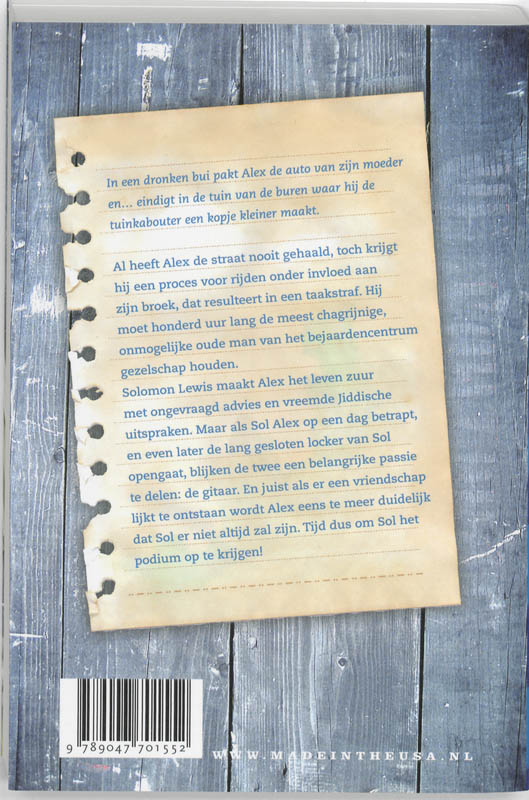 In een dronken bui pakt Alex de auto van zijn moeder
en... eindigt in de tuin van de buren waar hij de
tuinkabouter een kopje kleiner maakt.
Al heeft Alex de straat nooit gehaald, toch krijgt
hij een proces voor rijden onder invloed aan
zijn broek, dat resulteert in een taakstraf. Hij
moet honderd uur lang de meest chagrijnige,
onmogelijke oude man van het bejaardencentrum
gezelschap houden.
Solomon Lewis maakt Alex het leven zuur
met ongevraagd advies en vreemde Jiddische
uitspraken. Maar als Sol Alex op een dag betrapt,
en even later de lang gesloten locker van Sol
opengaat, blijken de twee een belangrijke passie
te delen: de gitaar. En juist als er een vriendschap
lijkt te ontstaan wordt Alex eens te meer duidelijk
dat Sol er niet altijd zal zijn. Tijd dus om Sol het
podium op te krijgen!
9 789047 701552
WWW.MADEINTHEUSA.NL